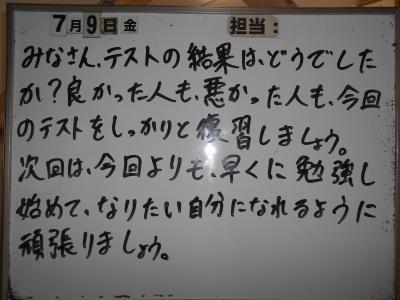 7月9日金 担当:
みなさん、テストの結果は、どうでした
か?良かった人も、悪かった人も、今回
のテストをしっかりと復習しましょう。
次回は、今回よりも、早くに勉強し
始めて、なりたい自分になれるように
頑張りましょう。